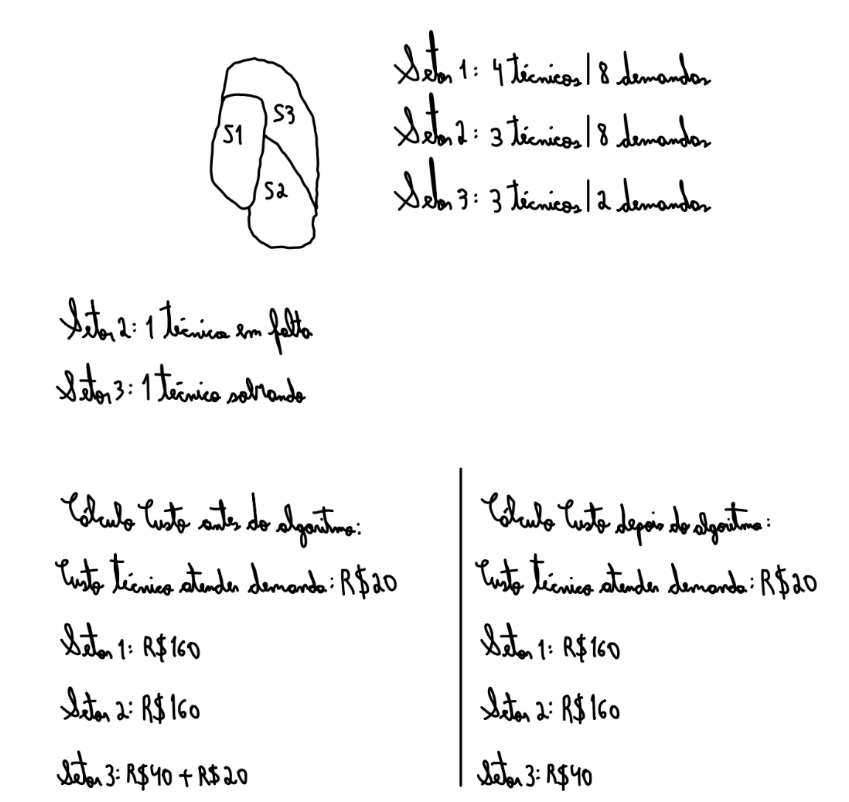 S3
S1
S2
Setor 1: 4 técnicos | 8 demandas
Setor 2: 3 técnicos | 8 demandas
Setor 3: 3 técnicos | 2 demandas
Setor 2: 1 técnico em falta
Setor 3: 1 técnico sobrando
Cálculo Custo antes do algoritmo:
Custo técnico atender demanda: R$20
Setor 1: R$160
Setor 2: R$160
Setor 3: R$40 + R$20
Cálculo Custo depois do algoritmo:
Custo técnico atender demanda: R$20
Setor 1: R$160
Setor 2: R$160
Setor 3: R$40